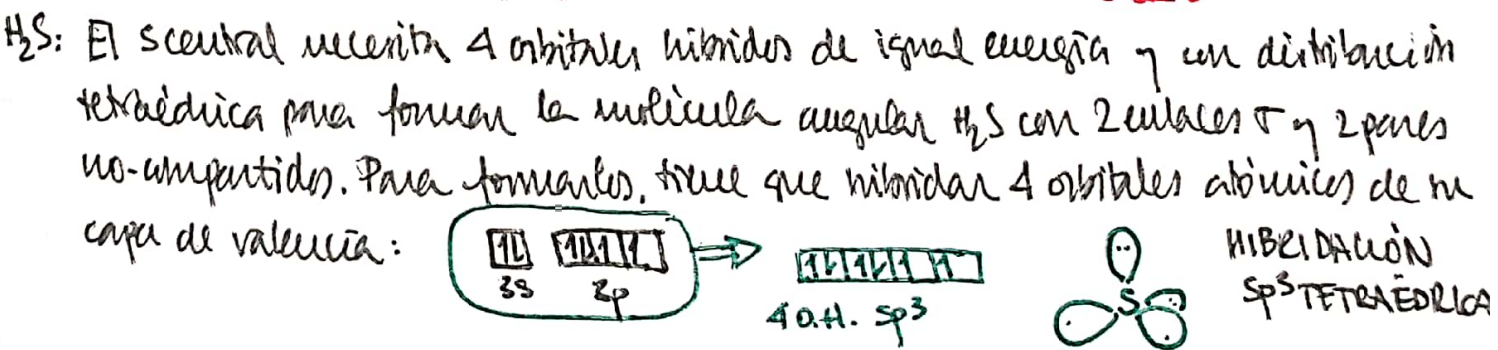 H₂S: El S central necesita 4 orbitales híbridos de igual energía y con distribución
tetraédrica para formar la molécula angular H₂S con 2 enlaces σ y 2 pares
no-compartidos. Para formarlos, tiene que hibridar 4 orbitales atómicos de su
capa de valencia:
3s 3p
4 O.H. sp³
S
HIBRIDACIÓN
SP³ TETRAÉDRICA